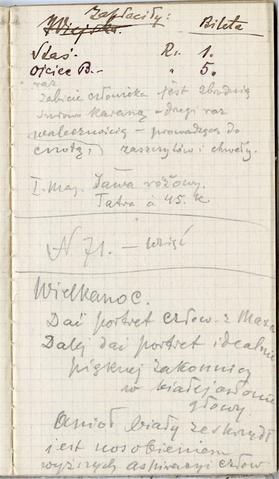 Zapłaciły:
Wiejska. Bileta
Staś. R. 1.
Ojciec B.— " 5.
raz
Zabicie człowieka jest zbrodnią
karaną — drugi raz
walecznością — prowadzącą do
cnoty, zaszczytów i chwały.
I. Maj. Jawa różowy.
Tatra a 45. K
N 71. — wziąć
Wielkanoc.
Dać portret człow. z
Dalej dać portret idealnie
pięknej zakonnicy
w białej osłonie
głowy
Anioł biały ze skrzydł
jest uosobieniem
wyższych aspiracyi człow